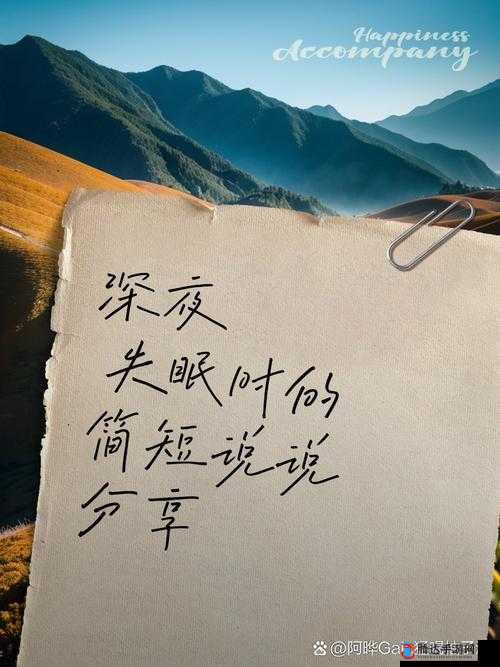 Happiness
Accompany
深夜
失眠时的
简短说说
分享
腾达手游网